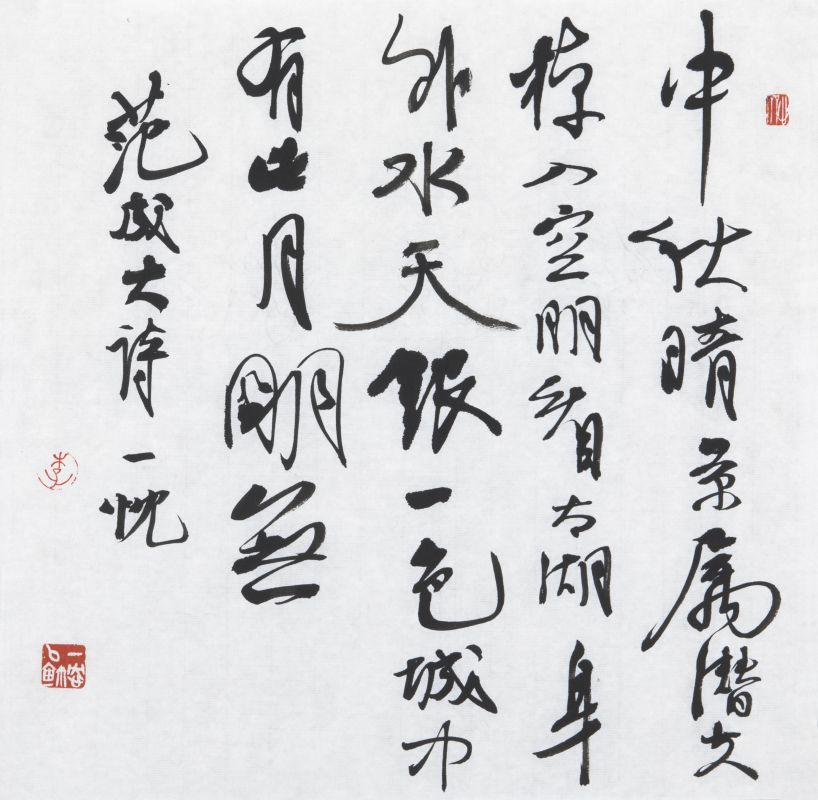 中秋晴景属潜夫
棹入空明看太湖身
外水天银一色城中
有此月明無
范成大诗 一忱
李